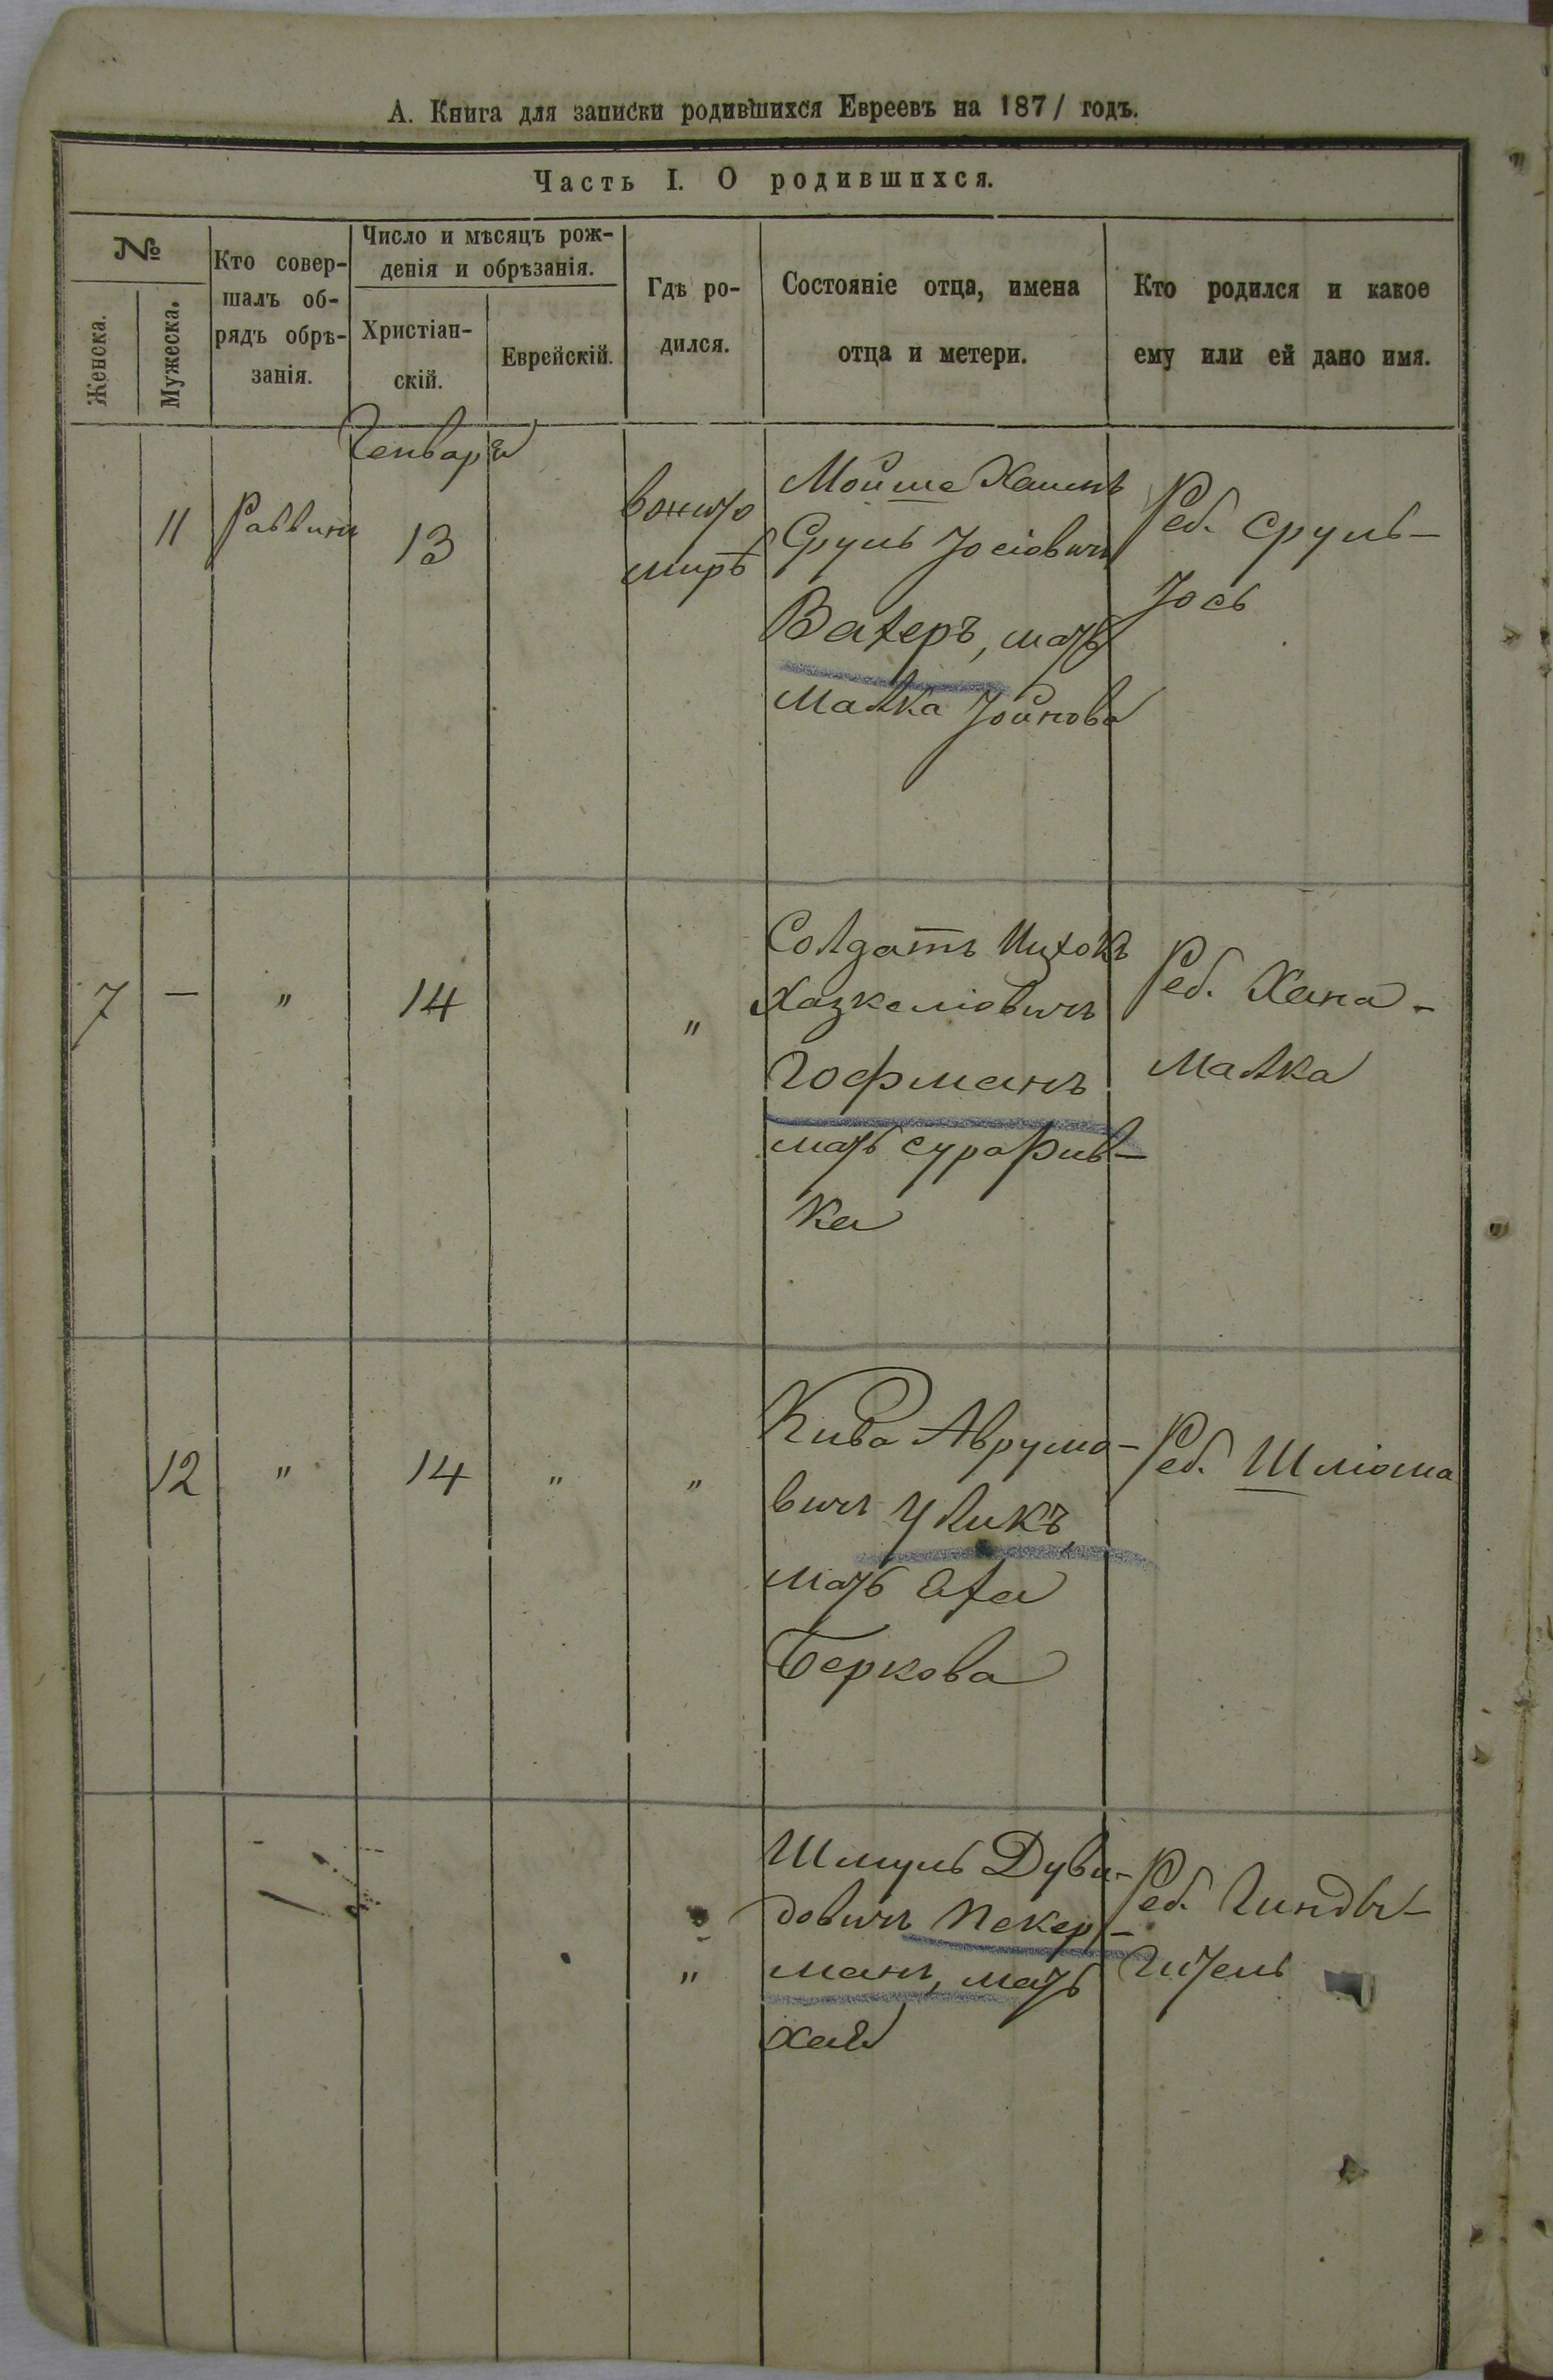 А. Книга для записки родившихся Евреевъ на 1871 годъ.
Часть I. О родившихся.
№
Женска.
Мужеска.
Кто совер-
шалъ об-
рядъ обрѣ-
занія.
Число и мѣсяцъ рож-
денія и обрѣзанія.
Христіан-
скій.
Еврейскій.
Гдѣ ро-
дился.
Состояніе отца, имена
отца и метери.
Кто родился и какое
ему или ей дано имя.
Генваря
11
Раввинъ
13
в жито
мирѣ
Мойше Хаимъ
Сруль Іосіовичъ
Ватеръ, мать
Малка Іойнова
Реб. Сруль-
Іось
7
—
"
14
"
Солдатъ Ицхокъ
Хазкеліовичъ
Гофманъ
мать сура Рив-
ка
Реб. Хана-
Малка
12
"
14
"
"
Кива Аврумо-
вичъ Уликъ,
мать
Беркова
Реб. Шліома
"
Шмуль Дуви-
довичъ Пекер-
манъ, мать
хая
Реб. Гинды-
Гитель